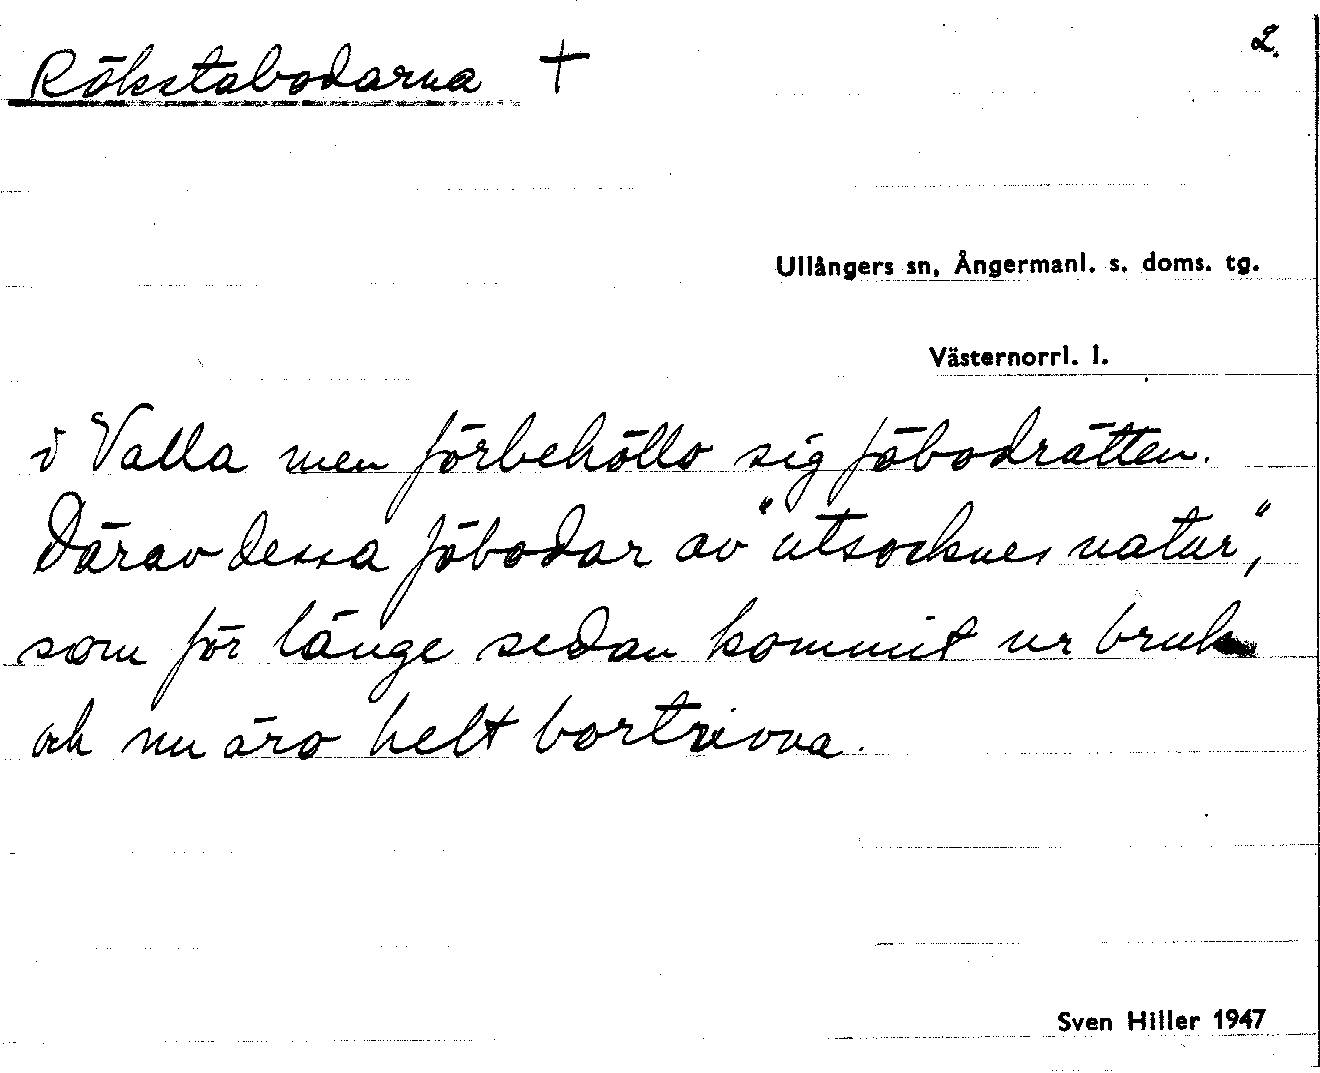 Rökstabodarna +
2.
Ullångers sn, Ångermanl. s. doms. tg.
Västernorrl. l.
i Valla men förbehöllo sig fäbodrätten.
Därav dessa fäbodar av "utsocknes natur",
som för länge sedan kommit ur bruk
och nu äro helt bortrivna.
Sven Hiller 1947